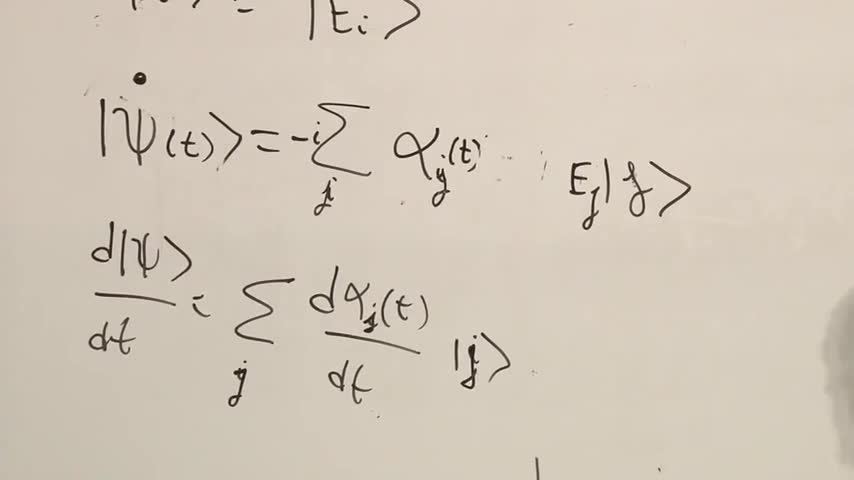 = |Ei>
|ψ̇(t)> = -i Σ_j α_j(t) E_j|j>
d|ψ>/dt = Σ_j dα_j(t)/dt |j>